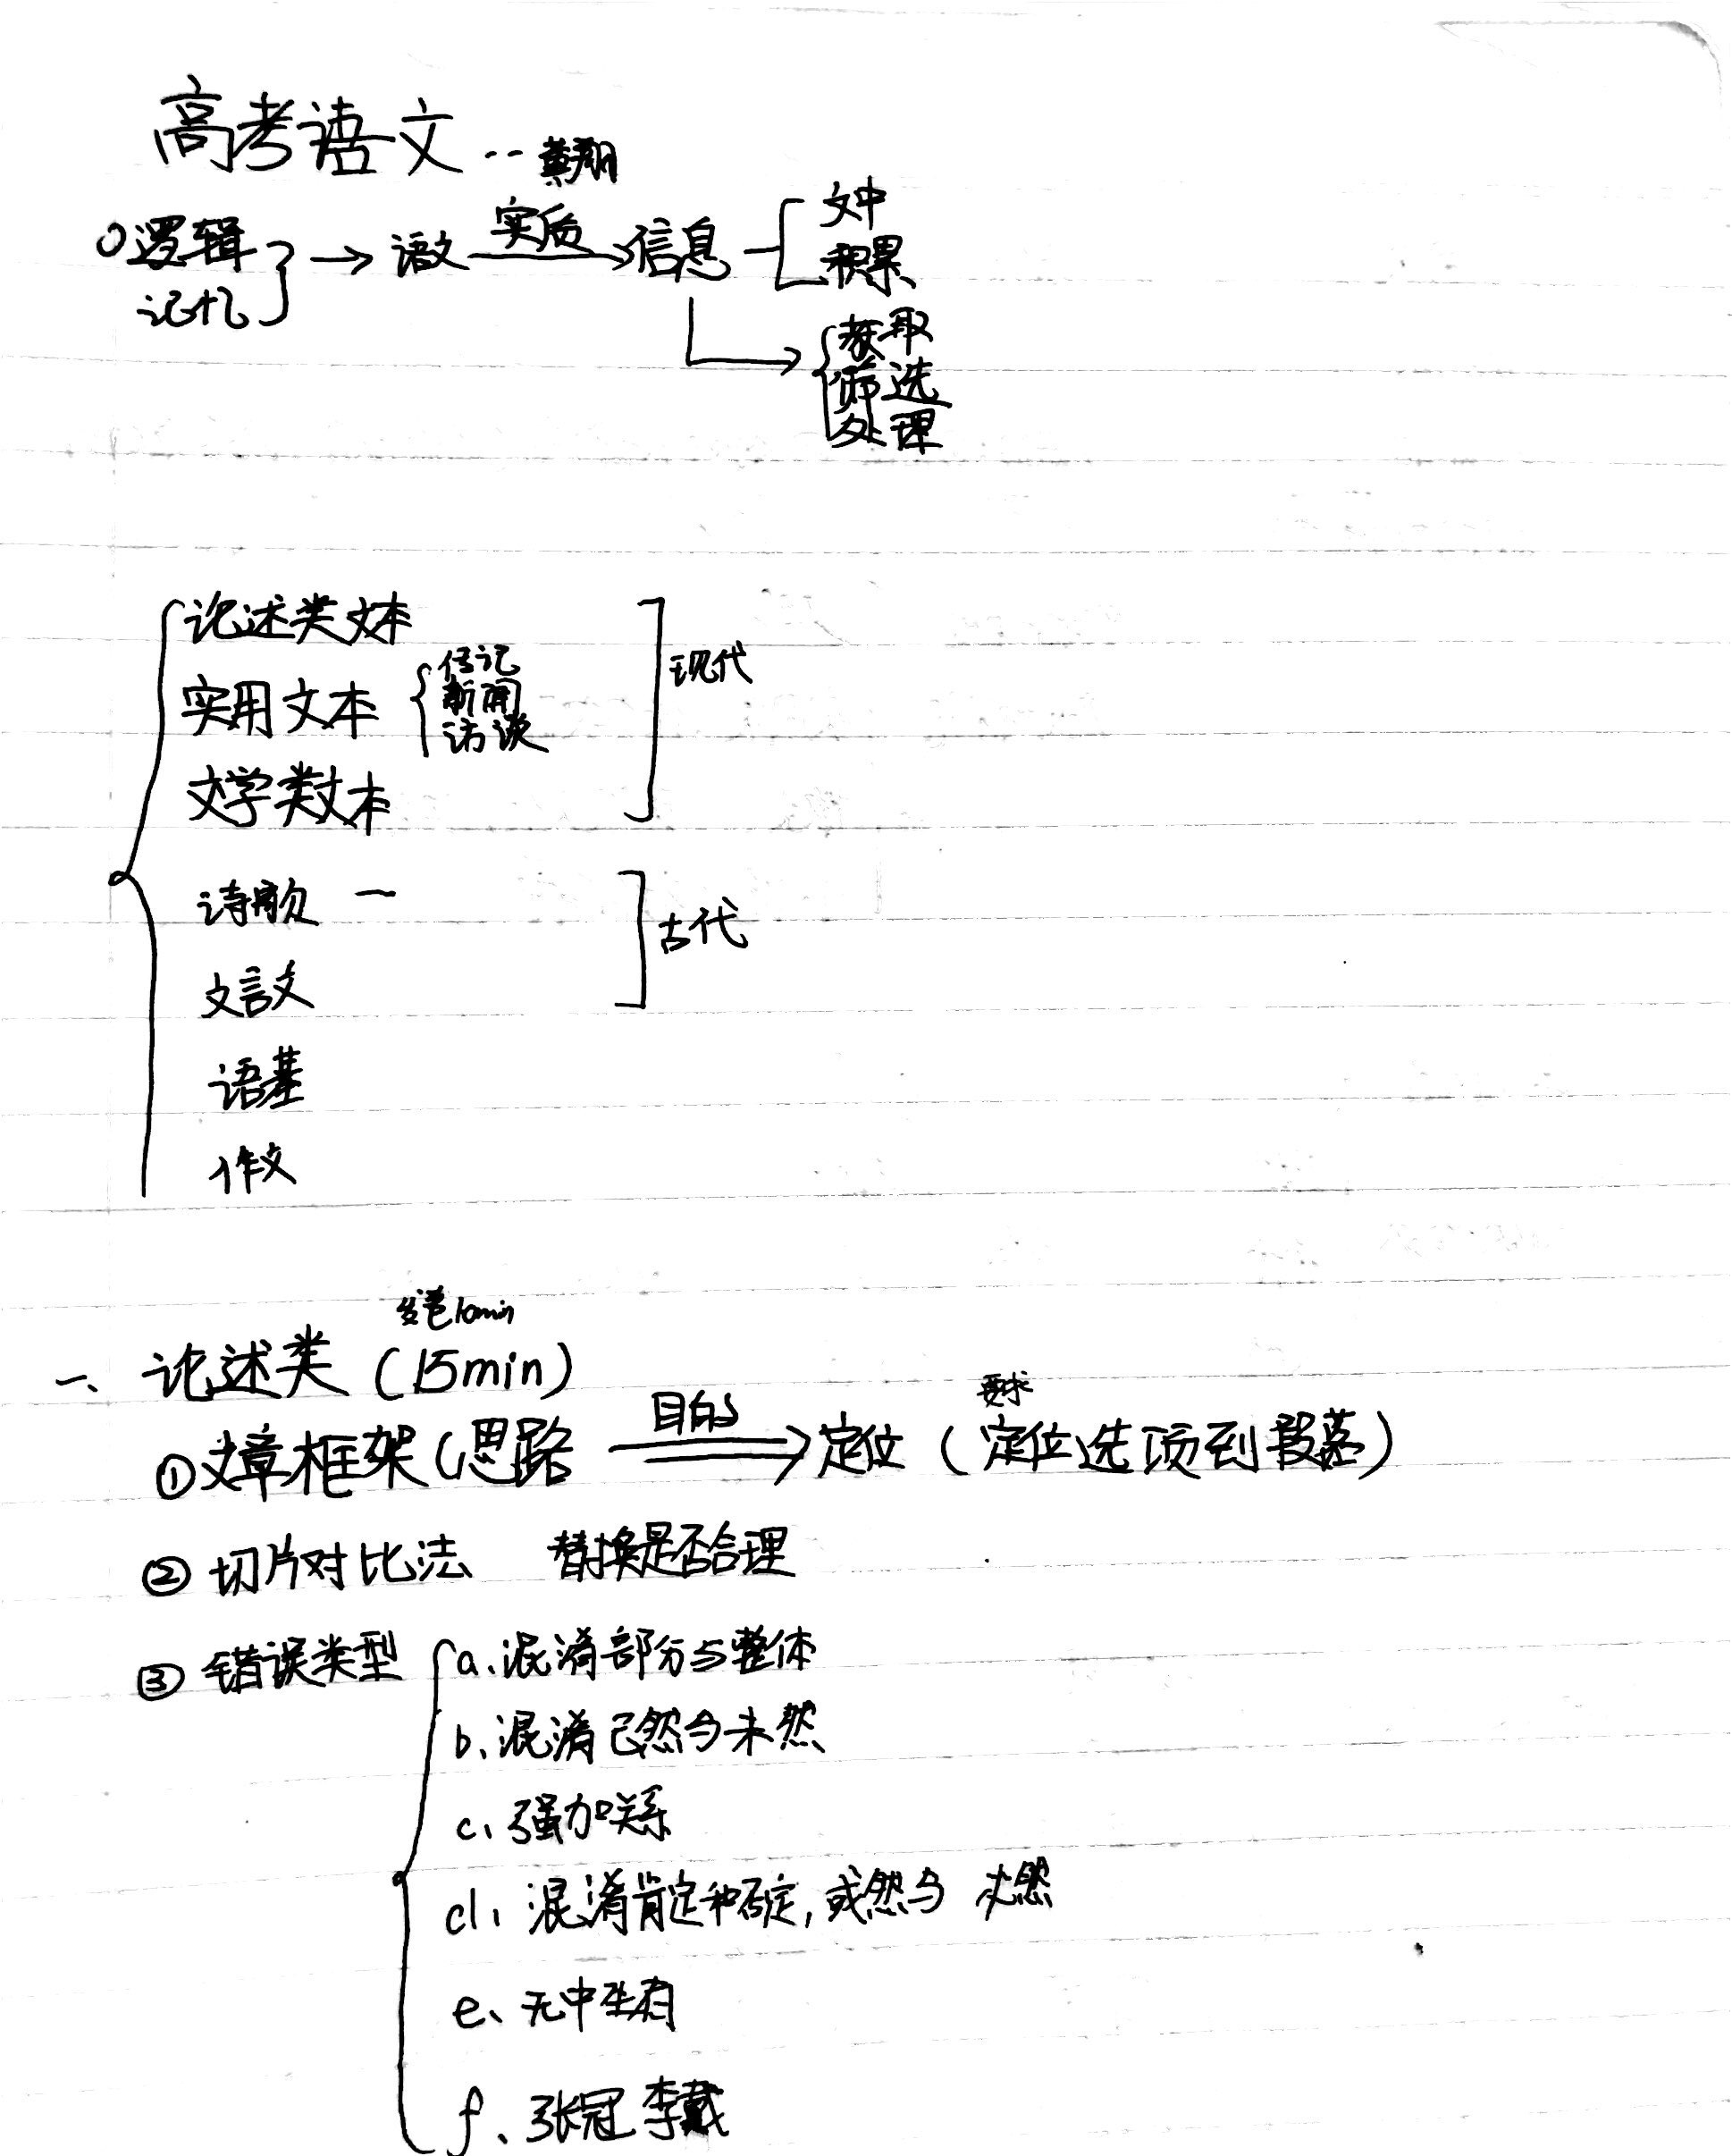 高考语文 -- 黄翔
逻辑
记忆
→ 语文 实质 → 信息
文中
积累
获取
筛选
处理
论述类文本
实用文本
传记
新闻
访谈
文学类文本
现代
诗歌 一
文言文
古代
语基
作文
发卷10min
一、论述类 (15min)
①文章框架(思路 目的 ⇒ 定位 (定位选项到段落)
要求
② 切片对比法 替换是否合理
③ 错误类型
a.混淆部分与整体
b、混淆已然与未然
c、强加关系
d、混淆肯定和否定,或然与 必然
e、无中生有
f、张冠李戴